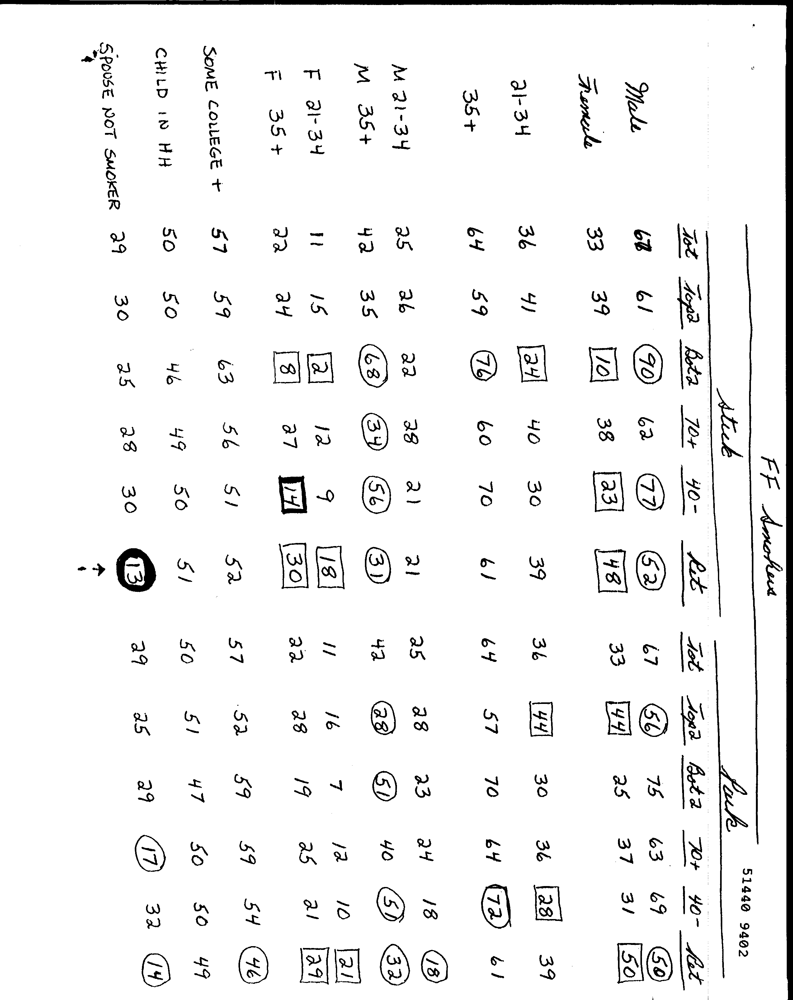 FF Smokers
51440 9402
Stick Pack
Tot Top2 Bot2 70+ 40- Ret Tot Top2 Bot2 70+ 40- Ret
Male 67 61 90 62 77 52 67 56 75 63 69 50
Female 33 39 10 38 23 48 33 44 25 37 31 50
21-34 36 41 24 40 30 39 36 44 30 36 28 39
35+ 64 59 76 60 70 61 64 57 70 64 72 61
M 21-34 25 26 22 28 21 21 25 28 23 24 18 18
M 35+ 42 35 68 34 56 31 42 28 51 40 51 32
F 21-34 11 15 2 12 9 18 11 16 7 12 10 21
F 35+ 22 24 8 27 14 30 22 28 19 25 21 29
SOME COLLEGE + 57 59 63 56 51 52 57 52 59 59 54 46
CHILD IN HH 50 50 46 49 50 51 50 51 47 50 50 49
SPOUSE NOT SMOKER 29 30 25 28 30 13 29 25 29 17 32 14